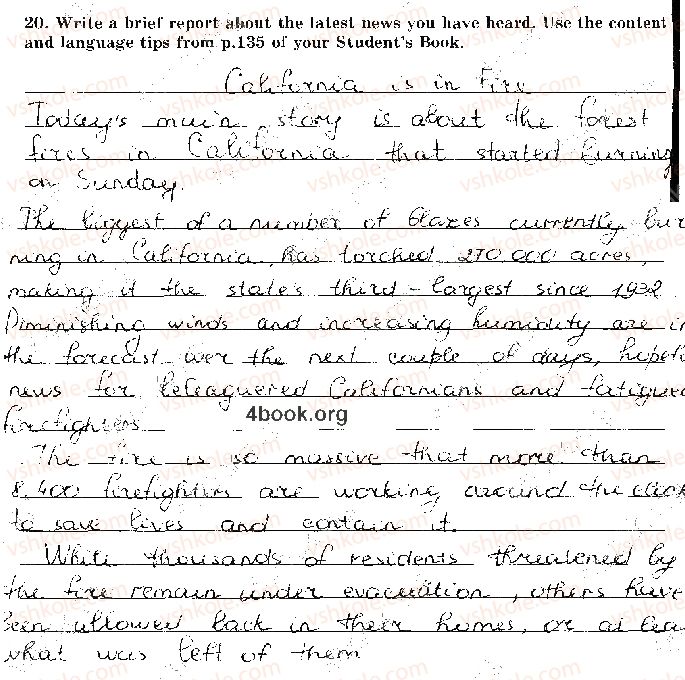 20. Write a brief report about the latest news you have heard. Use the content
and language tips from p.135 of your Student's Book.
California is in Fire
Today's main story is about the forest
fires in California that started burning
on Sunday.
The biggest of a number of blazes currently bur
ning in California, has torched 270 000 acres,
making it the state's third-largest since 1932
Diminishing winds and increasing humidity are in
the forecast over the next couple of days, hopefu
news for beleaguered Californians and fatigued
firefighters
4book.org
The fire is so massive that more than
8,400 firefighters are working around the clock
to save lives and contain it.
While thousands of residents threatened by
the fire remain under evacuation, others have
been allowed back in their homes, or at lea
what was left of them